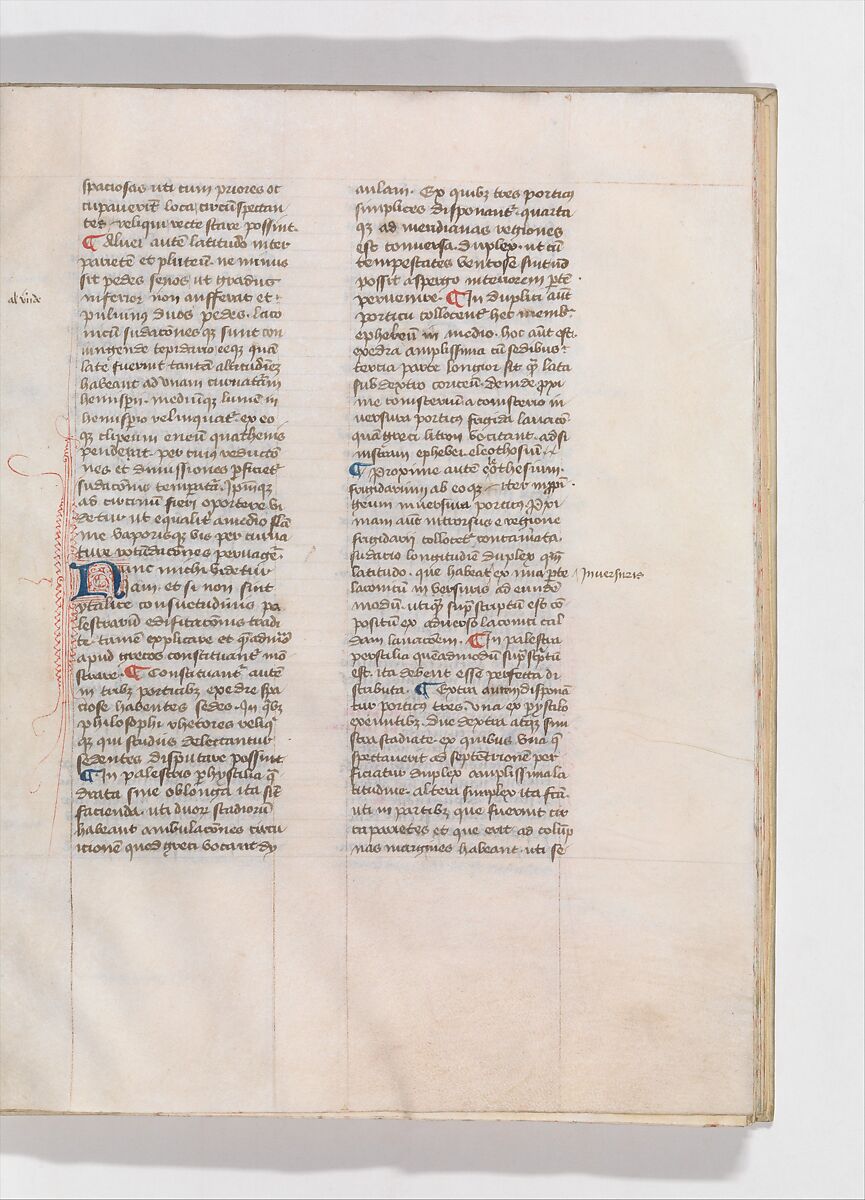 spaciosas uti cum priores oc
cupauerīt loca circūspectan
tes reliqui recte stare possint.
¶ Aluei autē latitudo inter
parietē et pluteū ne minus
sit pedes senos ut gradus
inferior non aufferat et
puluinus duos pedes. laco
nicū sudacōnes qꝫ sunt con
iungende tepidario eeqꝫ quā
late fuerint tantā altitudinē
habeant ad ymam curuatāni
hemisperii. mediūqꝫ lumē in
hemisperio relinquat᷑. ex eo
qꝫ clipeum eneū cathenis
pendeat. per cuius reductō
nes et dimissiones ꝑficiet᷑
sudacōnis temperat̄a. Ipmqꝫ
ad circinū fieri oportere vi
detur ut equalit᷑ a medio flā
me vaporisqꝫ vis per curua
ture rotūdacōnes peruaget᷑.
Nunc michi videtur
tam et si non sint
ytalice consuetudinis pa
lestrarū edificacōnis tradi
tr̄ tamē explicare et quēadmodū
apud grecos constituant᷑ mō
strare. ¶ Constituant᷑ autē
in tribꝫ porticibꝫ exedre spa
ciose habentes sedes. In qibꝫ
philosophi rhetores reliqⁱ
qꝫ qui studiis delectantur
sedentes disputare possint
¶ In palestris ꝑhystilia q̄
drata siue oblonga ita sūt
facienda. uti duorꝫ stadiorū
habeant ambulacōnes circū
icionē quod greci vocant dy
al vnde
aulam. Ex quibꝫ tres porticus
simplices disponant᷑. quarta
qꝫ ad meridianas regiones
est conuersa duplex. ut cū
tempestates ventose sint nō
possit aspergo interiorem ꝑtē
peruenire. ¶ In duplici aūt
porticu collocent᷑ hec membra
ephebeū in medio. hoc aūt est
exedra amplissima cū sedibus
tercia parte longior sit q̄ lata
sub dextro coriceū. deinde ꝓxi
me conisteriū a conisterio in
uersura porticus frigida lauacō
quā greci litron vocitant. ad si
nistram ephebei eleothosiū.
¶ Proxime autē eleothesium
frigidariū ab eoqꝫ iter in ꝓpni
geum in uersura porticꝰ. Proxi
mam aūt introrsus e regione
frigidarii collocet᷑ concamerata
sudacio longitudinē duplex quā
latitudo. que habeat ex vna ꝑte
laconicū in versuris ad eundē
modū. utiqꝫ supͣ scriptū est cō
positū ex aduerso laconici cal
dam lauacōem. ¶ In palestra
peristilia quēadmodū supͣ scptū
est. ita debent esse perfecta di
stributa. ¶ Extra autem disponā
tur porticus tres. vna ex pistilo
exeuntibꝫ. due dextra atqꝫ sini
stra stadiate. ex quibus vna q̄
spectauerit ad septētrionē per
ficiatur duplex amplissima la
titudine. altera simplex ita fcā.
uti in partibꝫ que fuerint cir
ca parietes et que erit ad colūp
nas margines habeant. uti se
In versuris